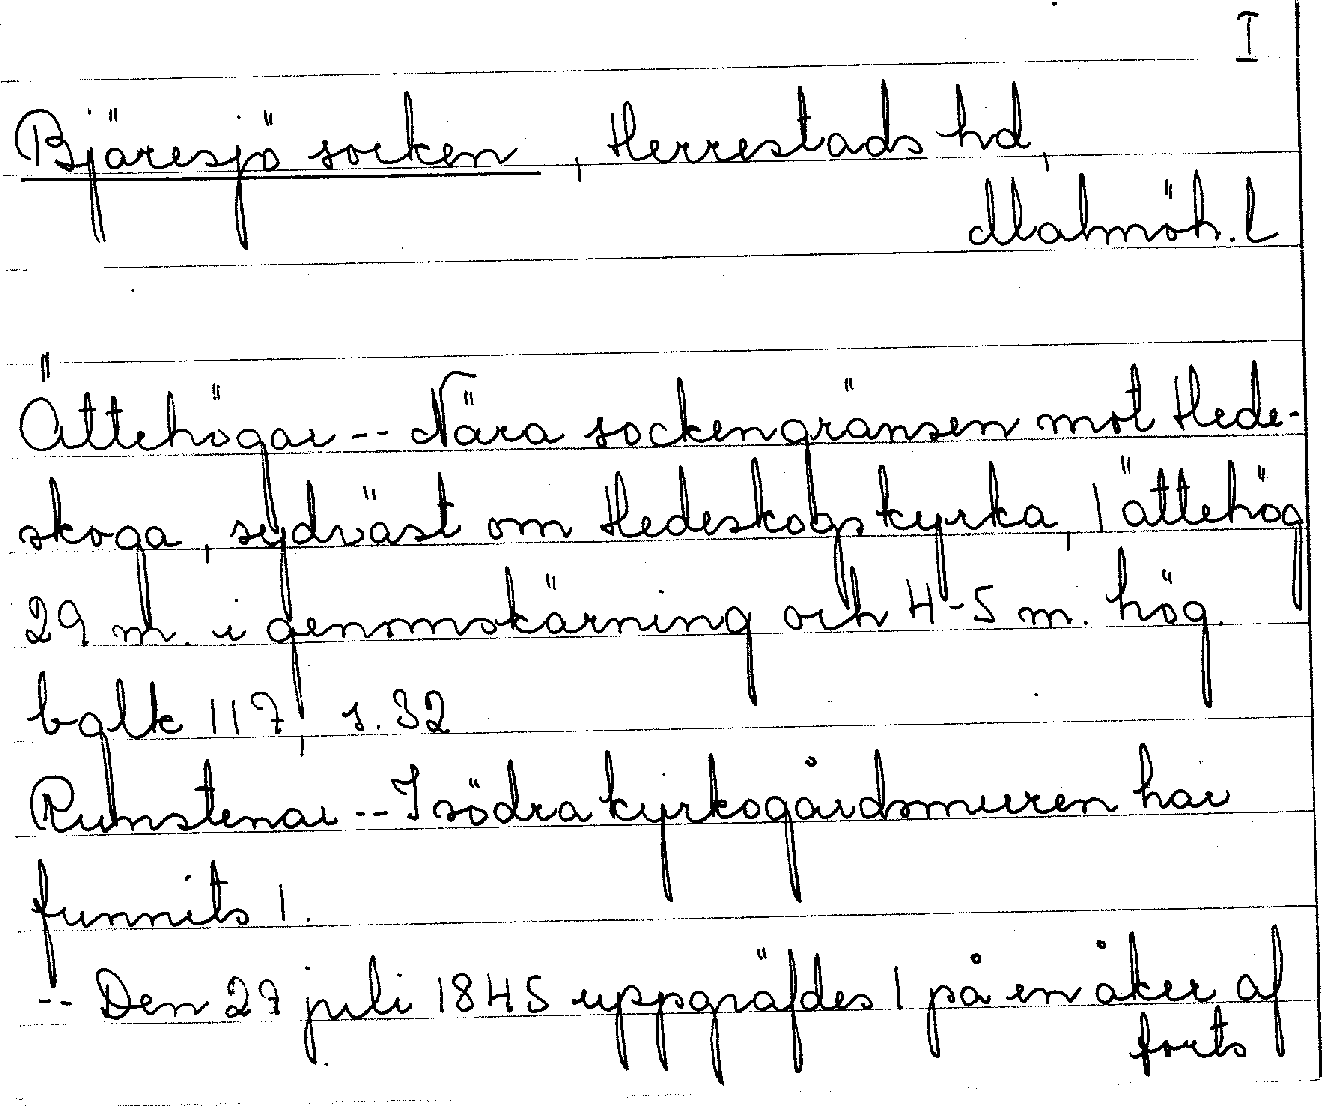 I
Bjäresjö socken, Herrestads hd,
Malmöh. L
Ättehögar -- Nära sockengränsen mot Hede-
skoga, sydväst om Hedeskogs kyrka, 1 ättehög
29 m. i genomskärning och 4-5 m. hög.
bglk 117, s. 32
Runstenar -- I södra kyrkogårdsmuren har
funnits 1.
-- Den 27 juli 1845 uppgräfdes 1 på en åker af
forts